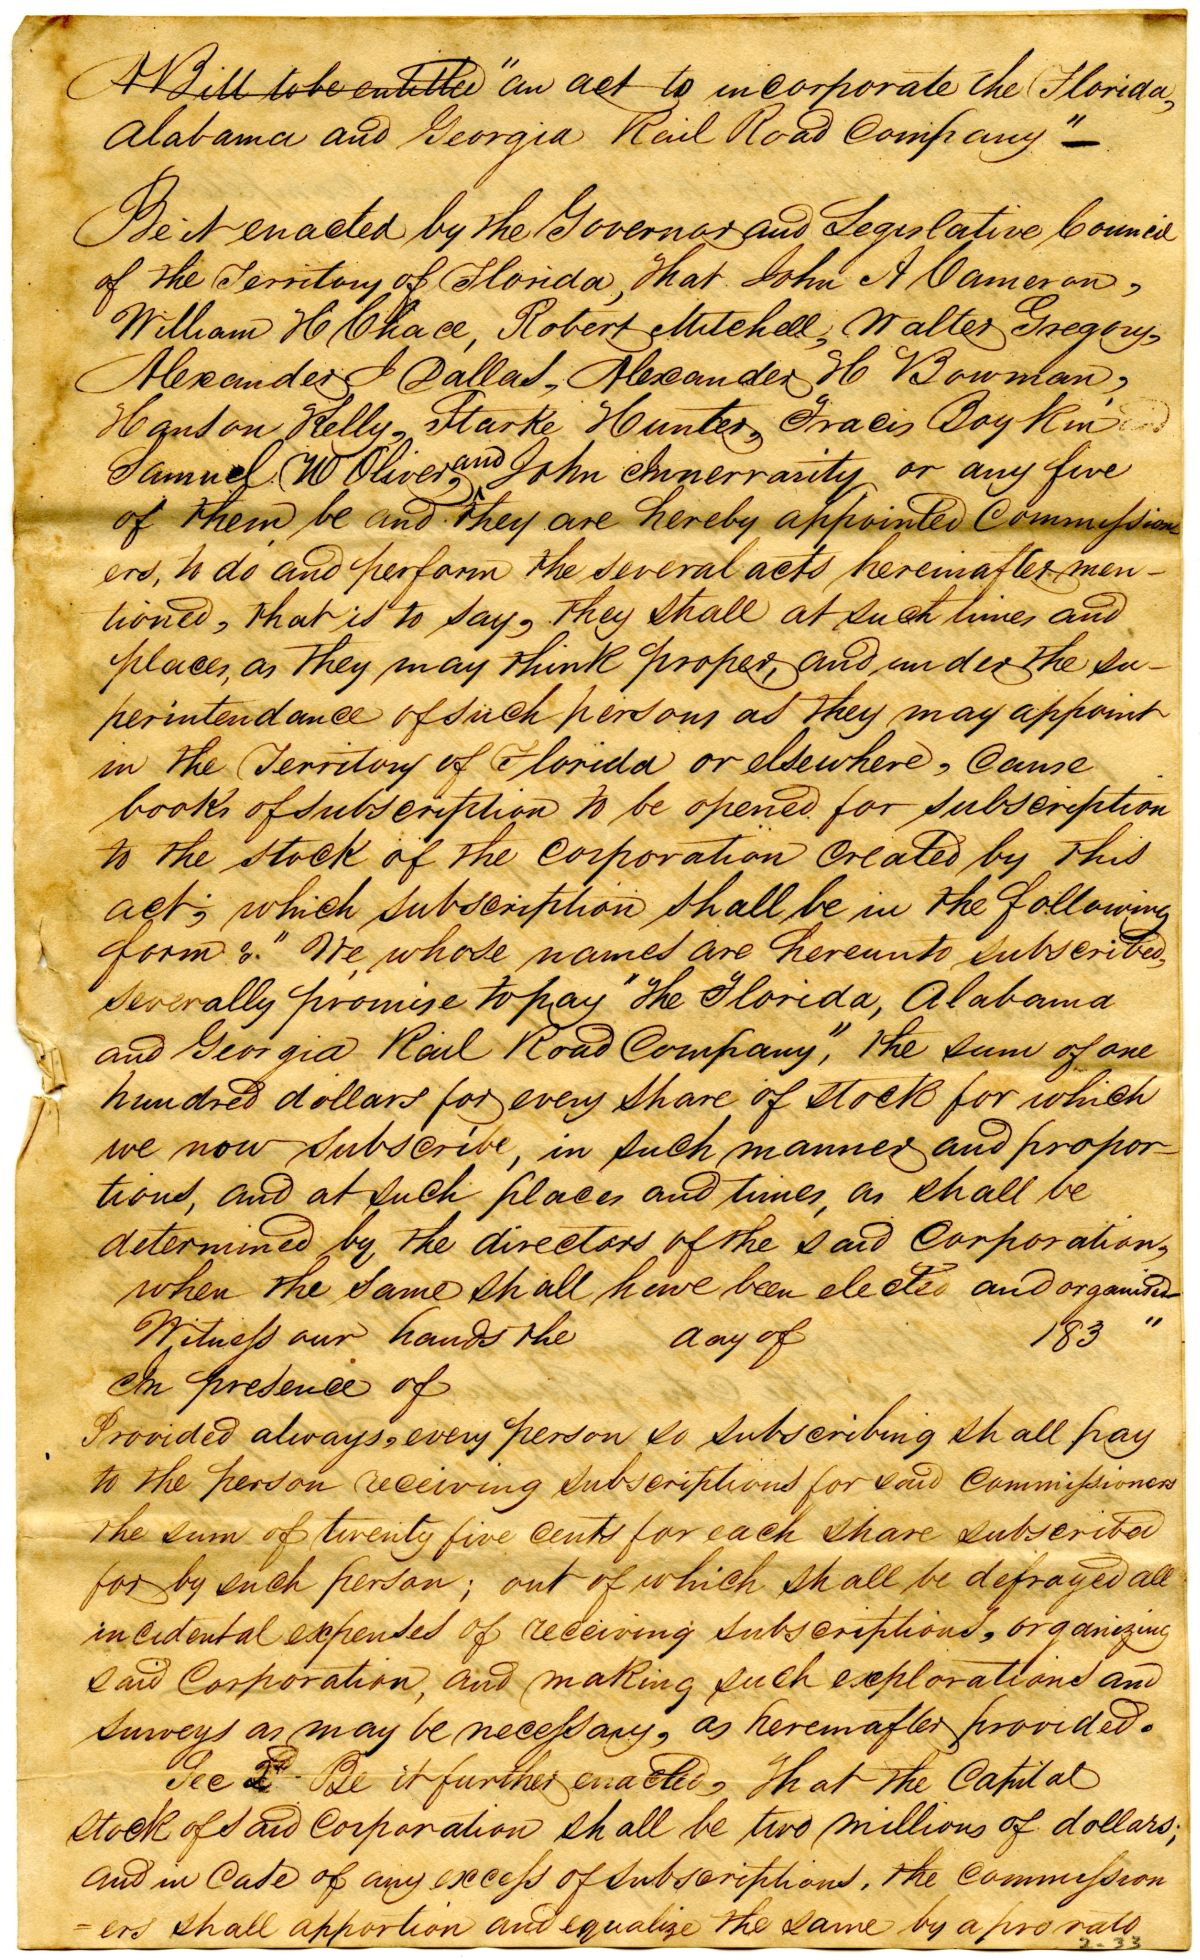 A Bill to be entitled "an act to incorporate the Florida,
Alabama and Georgia Rail Road Company" —
Be it enacted by the Governor and Legislative Council
of the Territory of Florida, That John A Cameron,
William H Chace, Robert Mitchell, Walter Gregory,
Alexander J Dallas, Alexander H Bowman,
Hanson Kelly, Starke Hunter, Fracis Boykin and
Samuel W Oliver, and John Innerrarity or any five
of them be and they are hereby appointed Commission
ers, to do and perform the several acts hereinafter men-
tioned, that is to say, they shall at such times and
places, as they may think proper, and under the su-
perintendance of such persons as they may appoint
in the Territory of Florida or elsewhere, cause
books of subscription to be opened for subscription
to the stock of the corporation created by this
act; which subscription shall be in the following
form :" We, whose names are hereunto subscribed,
severally promise to pay "the Florida, Alabama
and Georgia Rail Road Company", the sum of one
hundred dollars for every share of stock for which
we now subscribe, in such manner and propor-
tions, and at such places and times, as shall be
determined by the directors of the said Corporation,
when the same shall have been elected and organized
Witness our hands the day of 183 "
In presence of
Provided always, every person so subscribing shall pay
to the person receiving subscriptions for said Commissioners
the sum of twenty five cents for each share subscribed
for by such person; out of which shall be defrayed all
incidental expenses of receiving subscriptions, organizing
said Corporation, and making such explorations and
surveys as may be necessary, as hereinafter provided.
Sec 2d. Be it further enacted, That the Capital
stock of said Corporation shall be two millions of dollars;
and in case of any excess of subscriptions, the Commission
=ers shall apportion and equalize the same by a pro rato
2-33